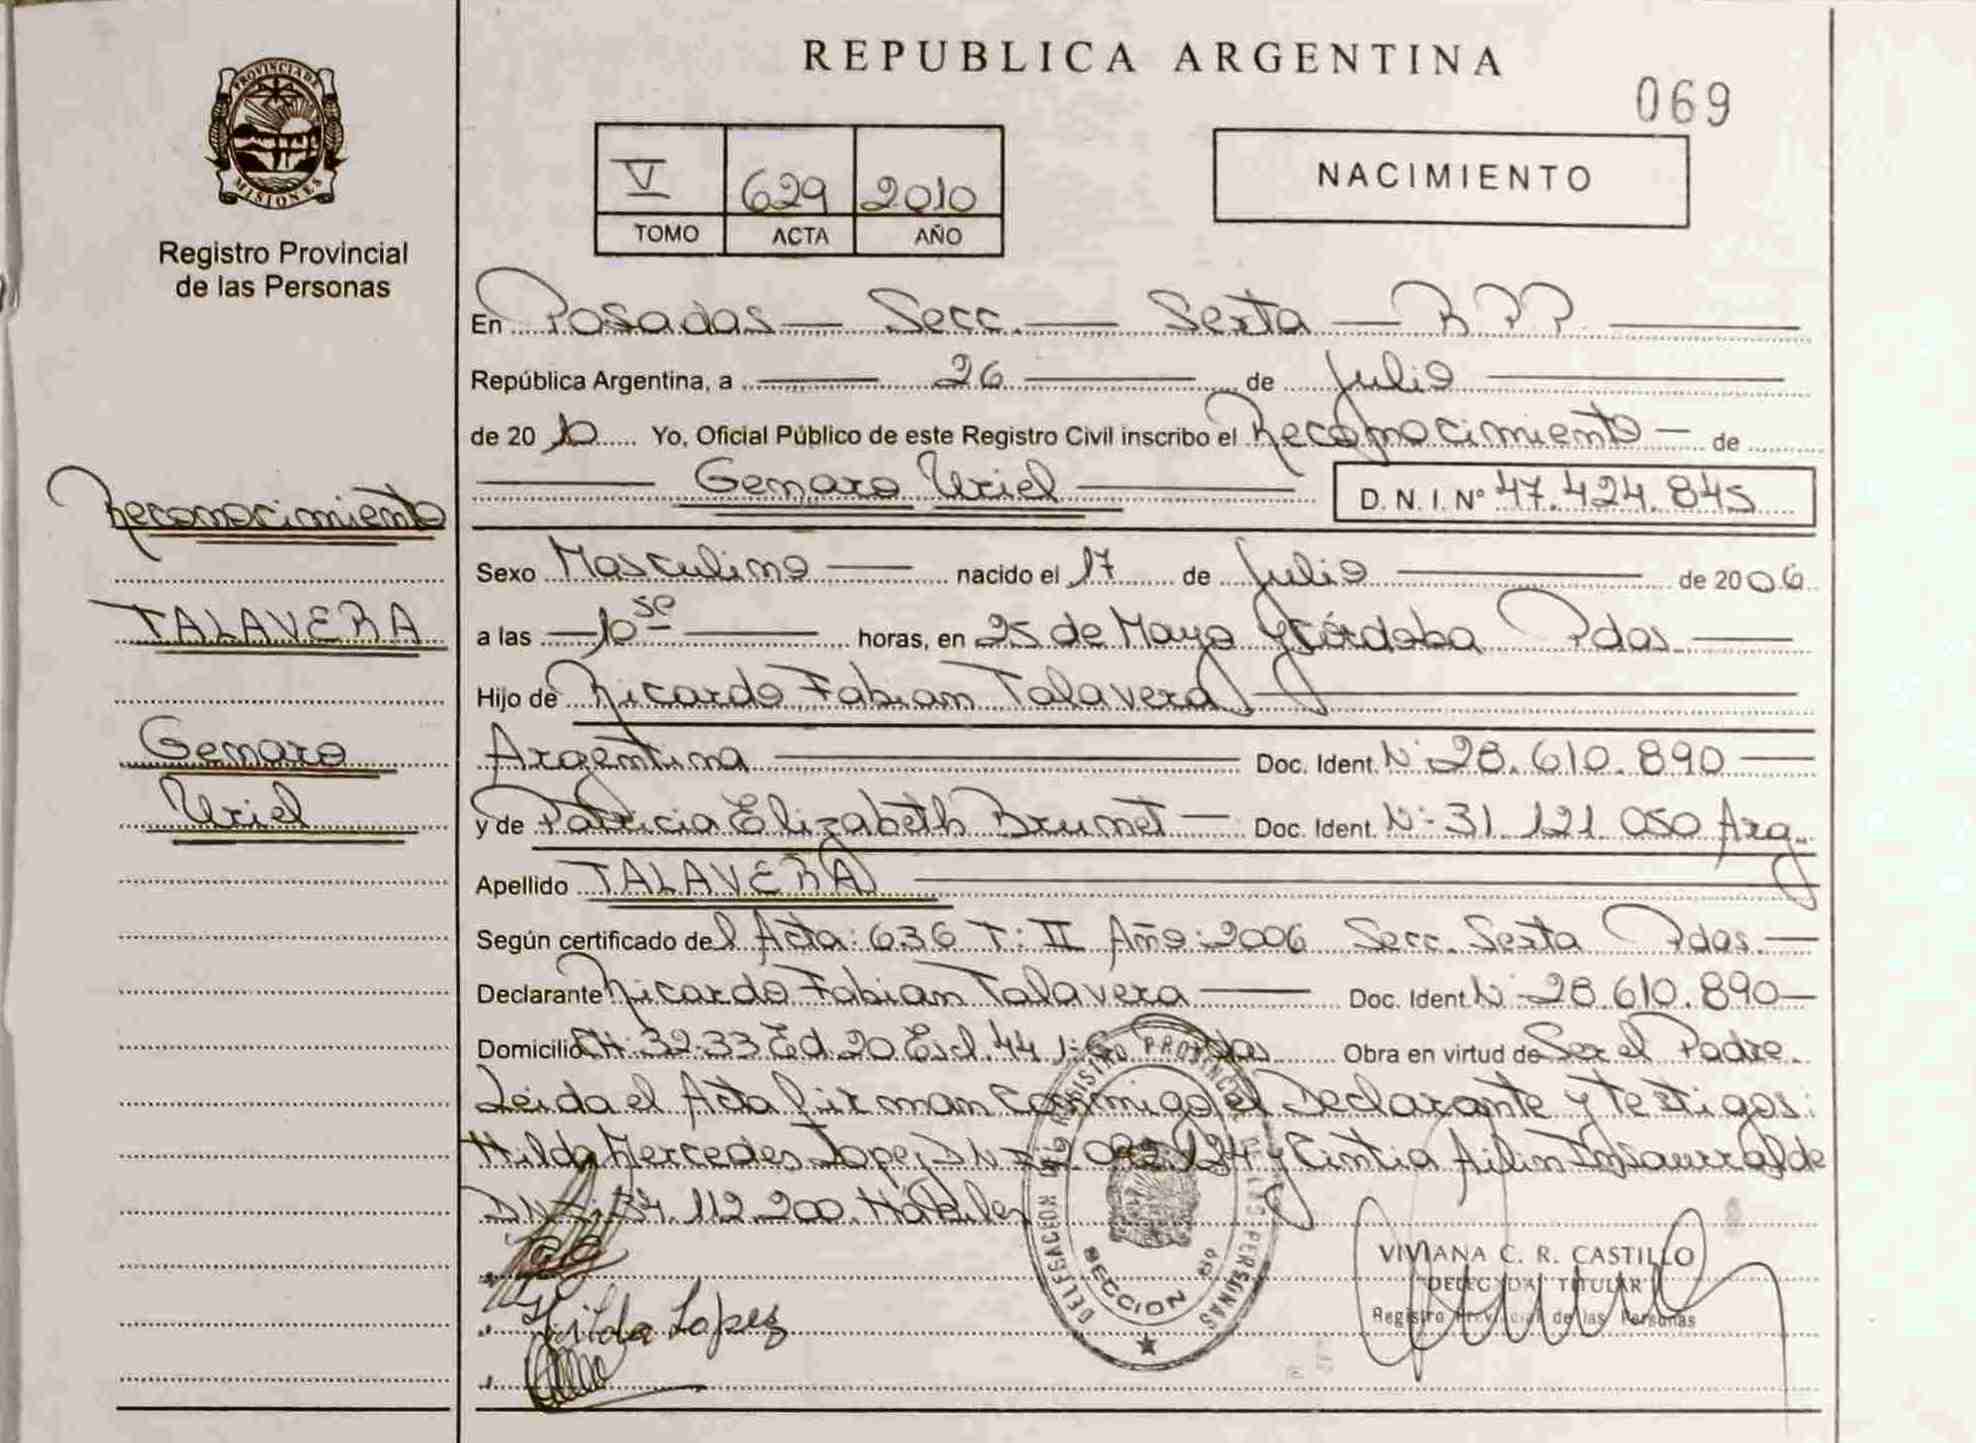 REPUBLICA ARGENTINA
069
PROVINCIA DE MISIONES
Registro Provincial
de las Personas
V 629 2010
TOMO ACTA AÑO
NACIMIENTO
En Posadas — Secc. — Sexta — RPP.
República Argentina, a 26 de Julio
de 2010 Yo, Oficial Público de este Registro Civil inscribo el Reconocimiento — de
Genaro Uriel D. N. I. Nº 47.424.845
Sexo Masculino nacido el 17 de Julio de 2006
a las 10 horas, en 25 de Mayo y Córdoba Pdas.
Hijo de Ricardo Fabian Talavera
Argentina Doc. Ident. Nº 28.610.890
y de Patricia Elizabeth Brumet — Doc. Ident. Nº 31.121.050 Arg.
Apellido TALAVERA
Según certificado del Acta: 636 T: II Año: 2006 Secc. Sexta Pdas.
Declarante Ricardo Fabian Talavera Doc. Ident. Nº 28.610.890
Domicilio CH: 32.33 Ed. 20 Esc. 44 Pdas Obra en virtud de Ser el Padre.
Leida el Acta firman conmigo el Declarante y testigos:
Hilda Mercedes Lopez DNI y Cintia Ailin Insaurralde
DNI: 34.112.200. Hábiles
Reconocimiento
TALAVERA
Genaro
Uriel
Hilda Lopez
DELEGACION DEL REGISTRO PROVINCIAL DE LAS PERSONAS
SECCION 6º
VIVIANA C. R. CASTILLO
DELEGADA TITULAR
Registro Provincial de las Personas